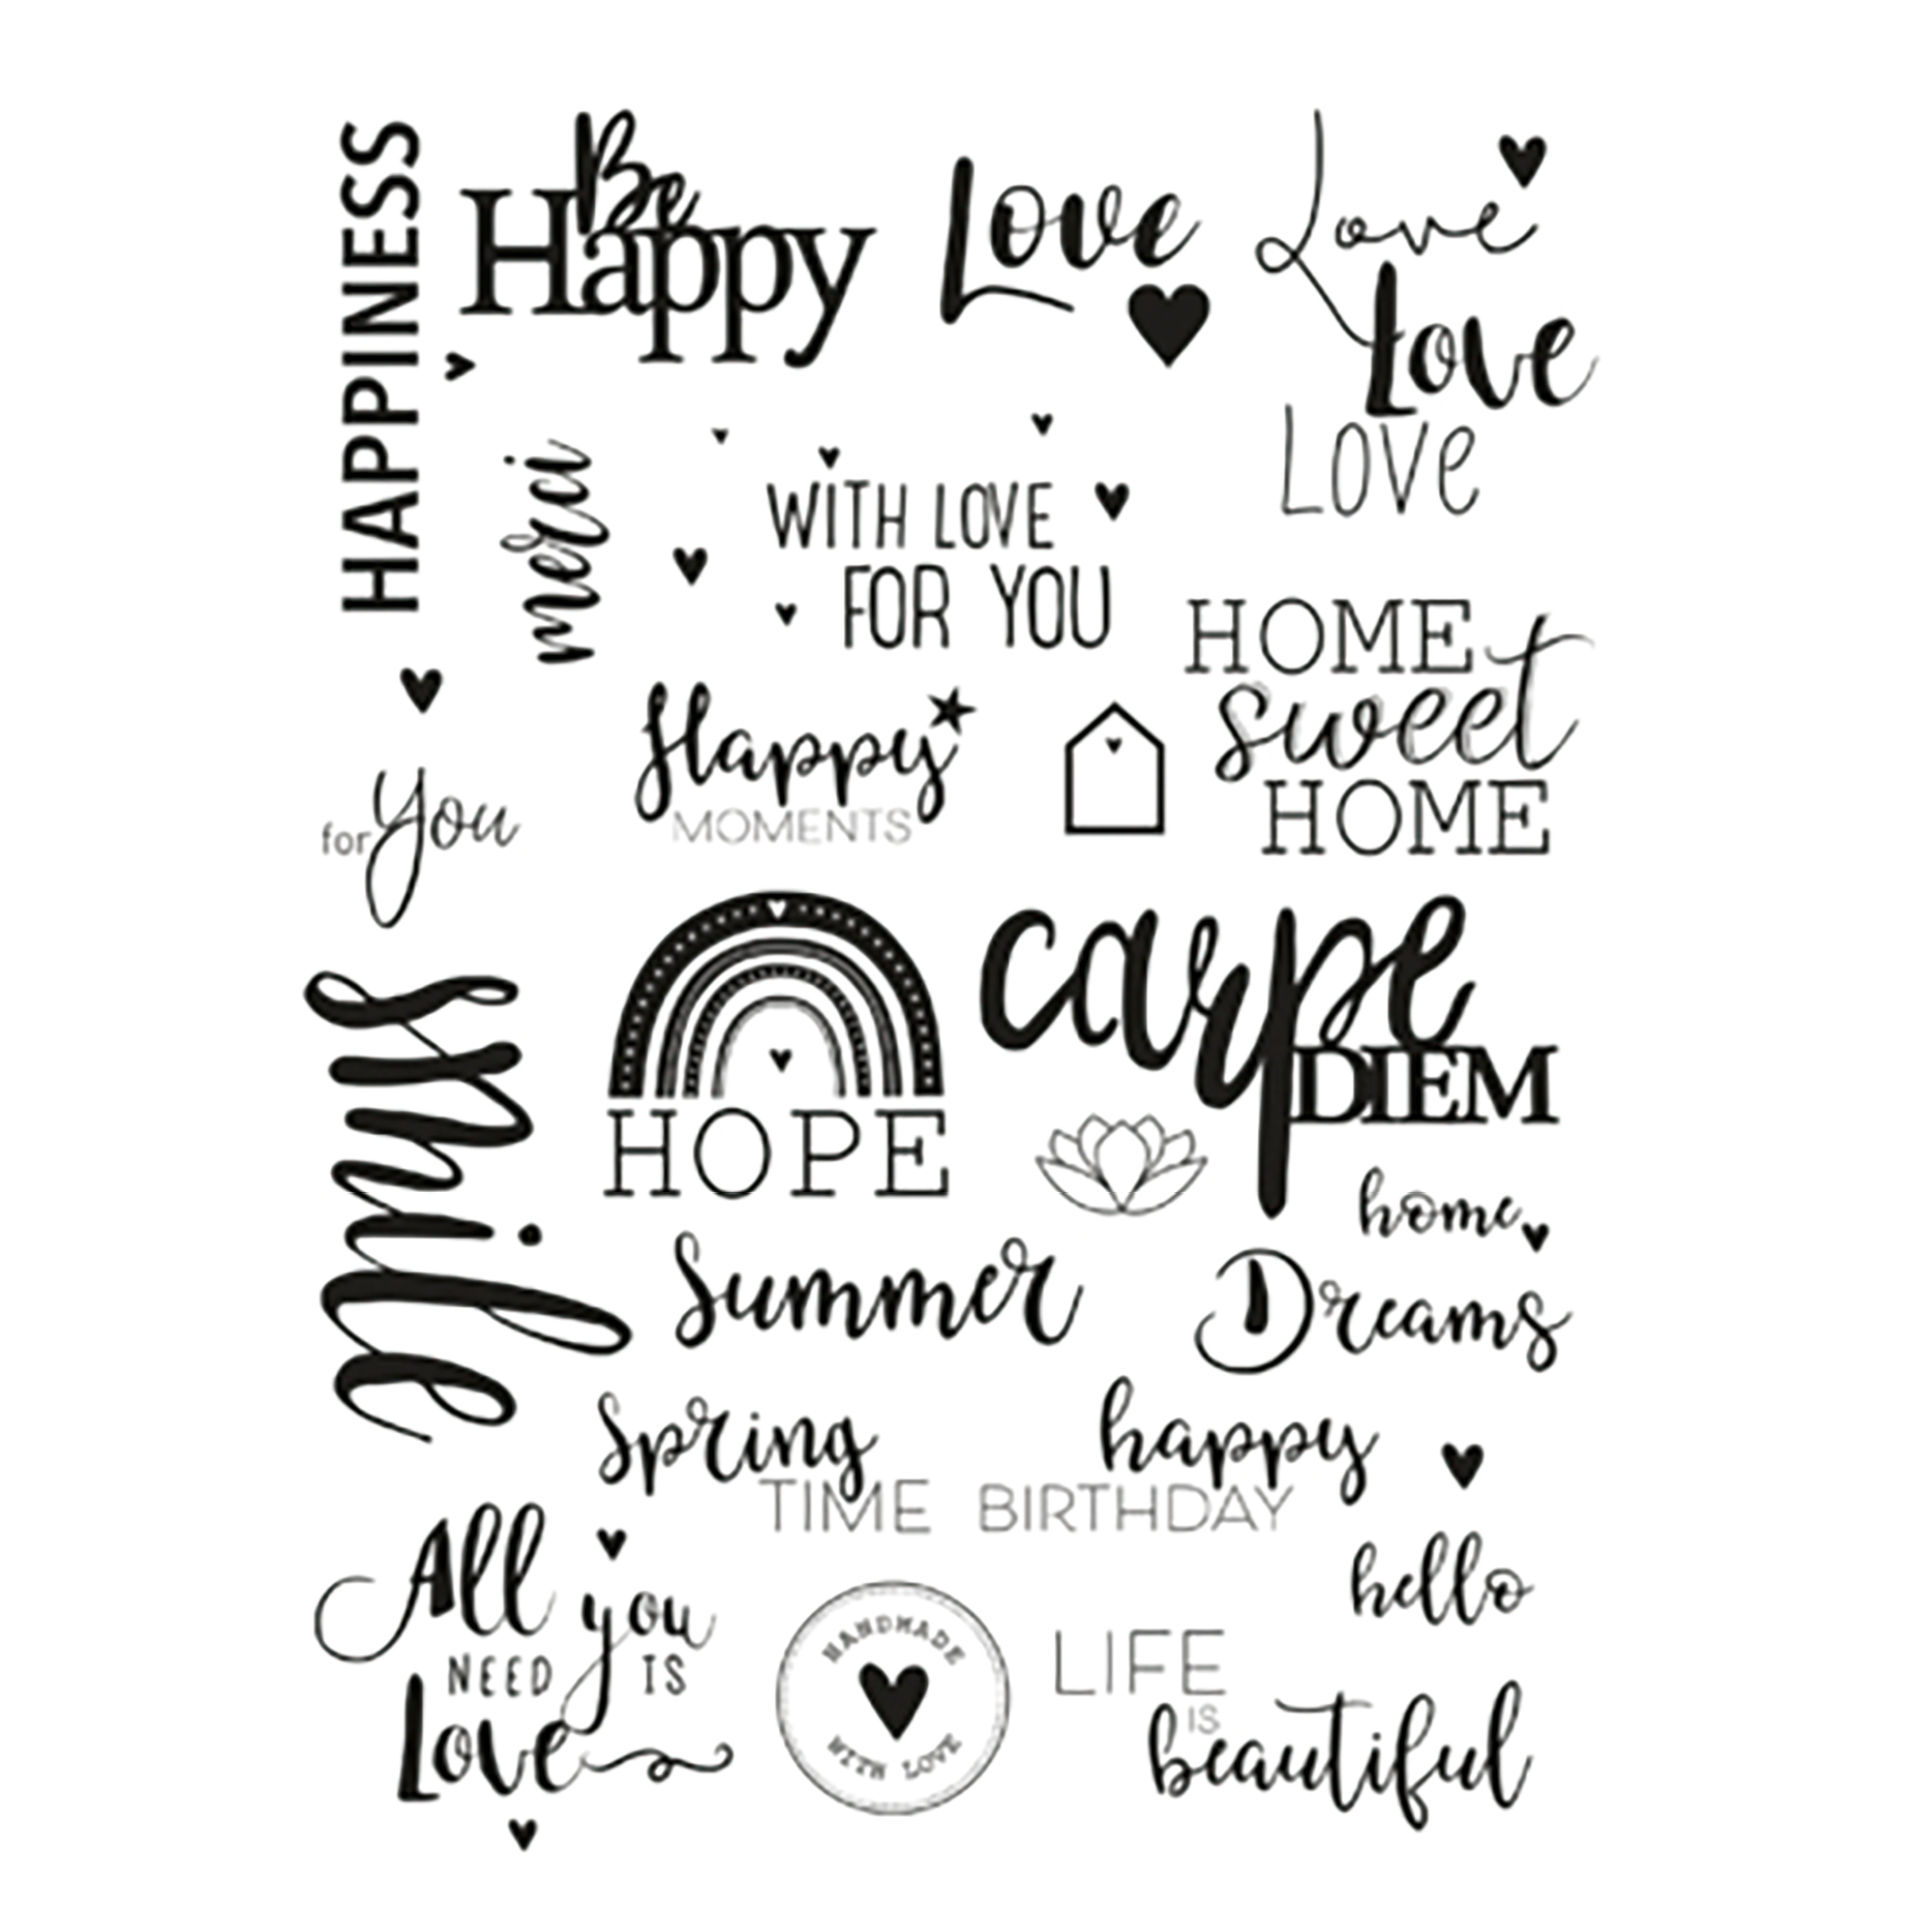 HAPPINESS
Be
Happy
Love
Love
Love
LOVe
merci
WITH LOVE
FOR YOU
HOME
sweet
HOME
for you
Happy
MOMENTS
smile
HOPE
carpe
DIEM
home
Summer
Dreams
Spring
TIME
happy
BIRTHDAY
hello
All you
NEED IS
Love
HANDMADE
WITH LOVE
LIFE
IS
beautiful